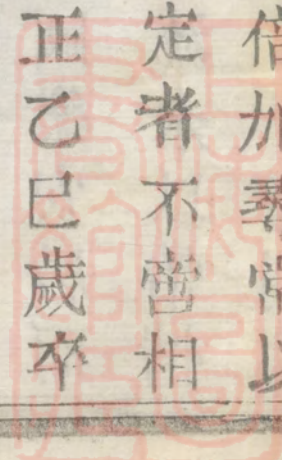 倍加尋常以
定者不啻相
正乙巳歲卒